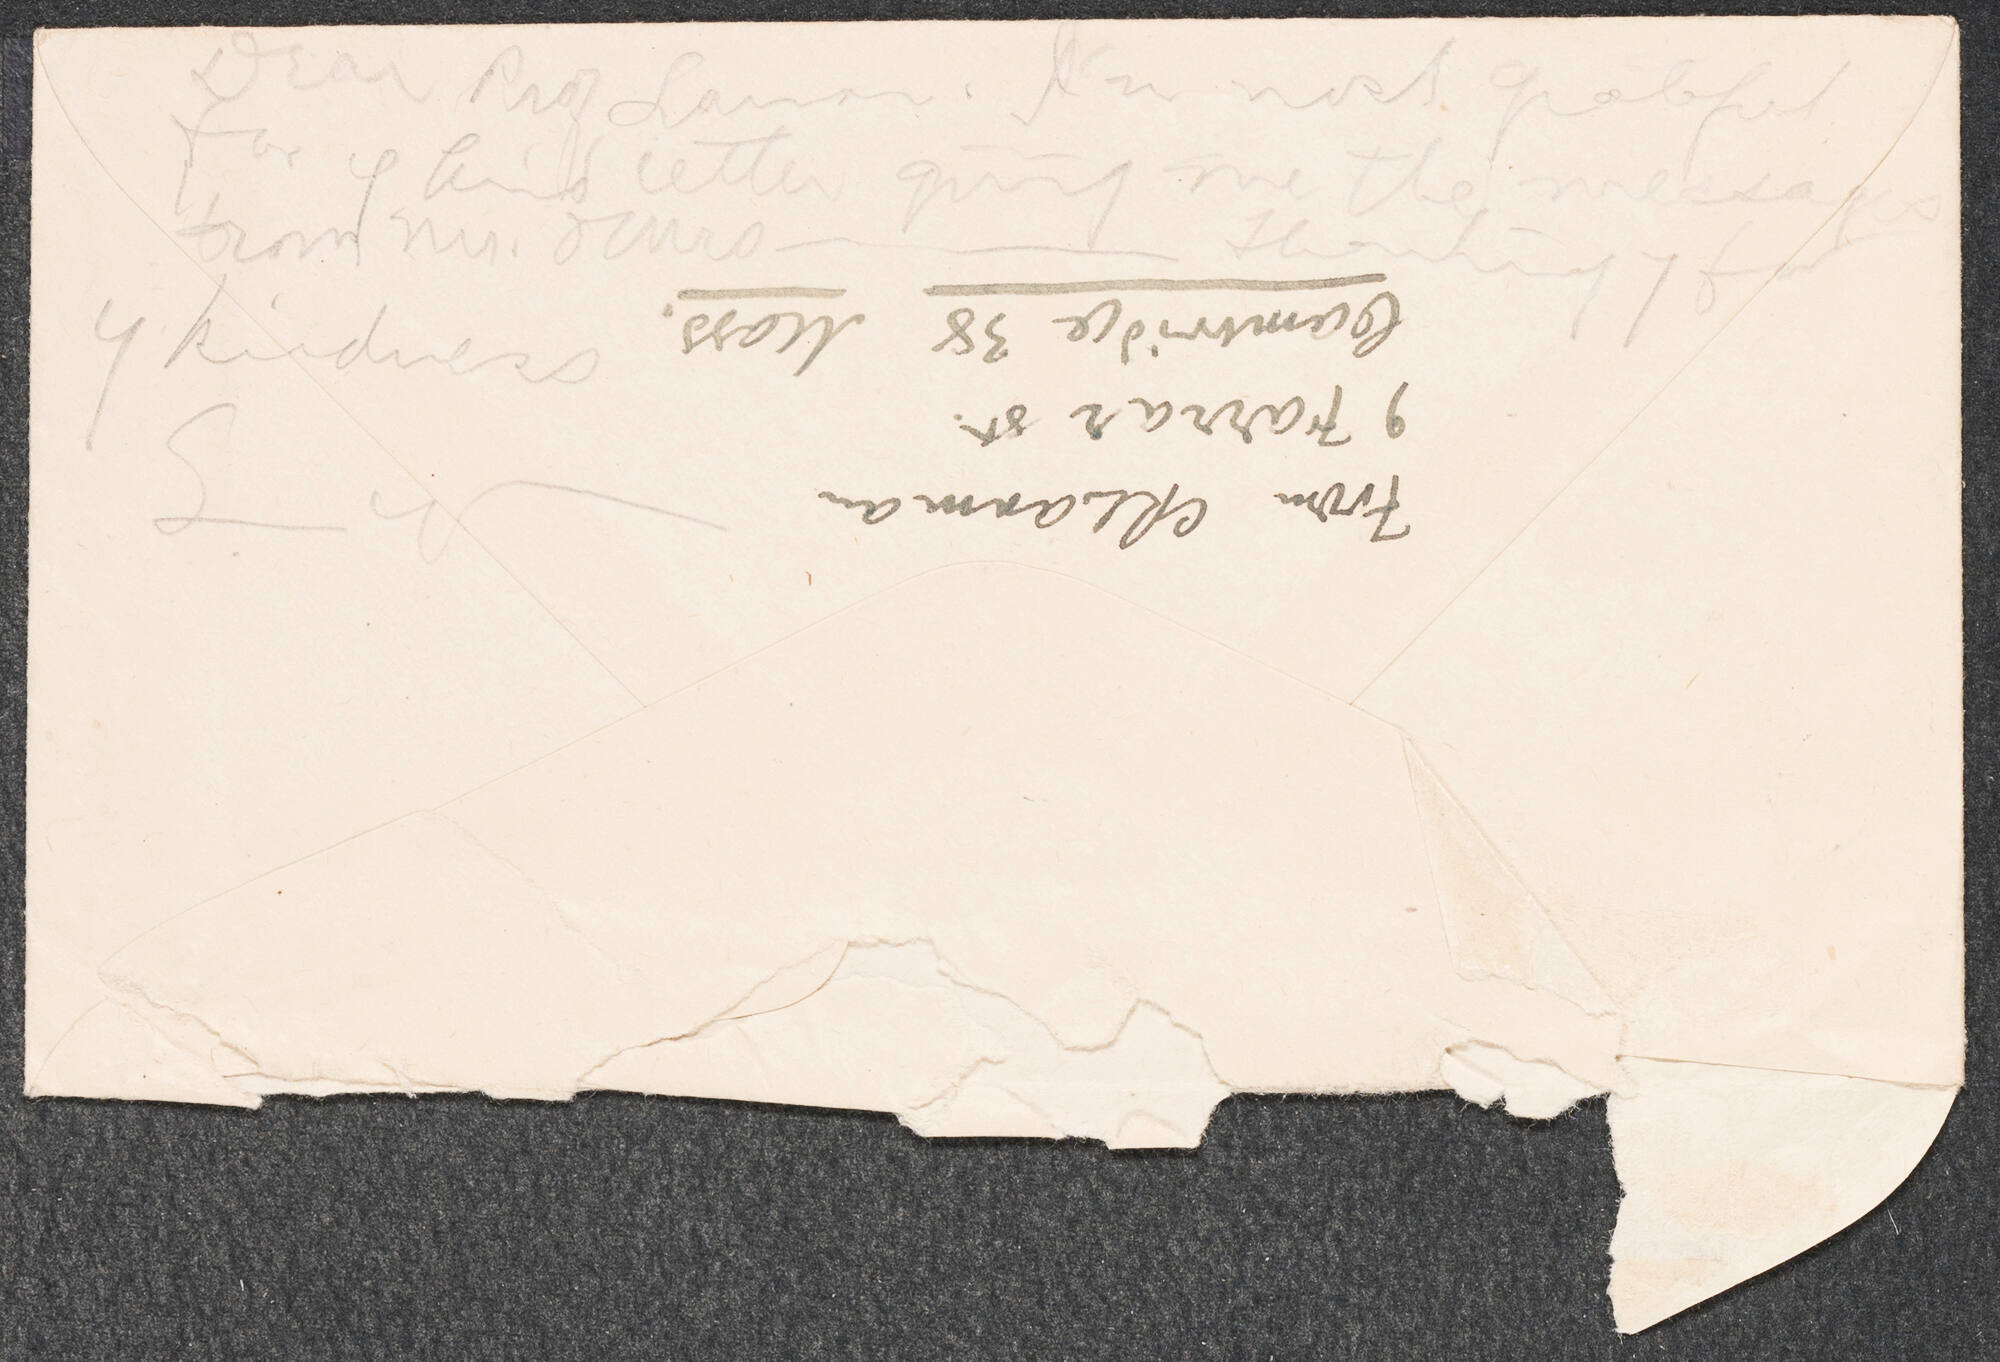 Dear Prof Lanman. I'm most grateful
for y kind letter giving me the messages
from Mr. — thanking y for
y. kindness
From CRLanman
9 Farrar St.
Cambridge 38 Mass.